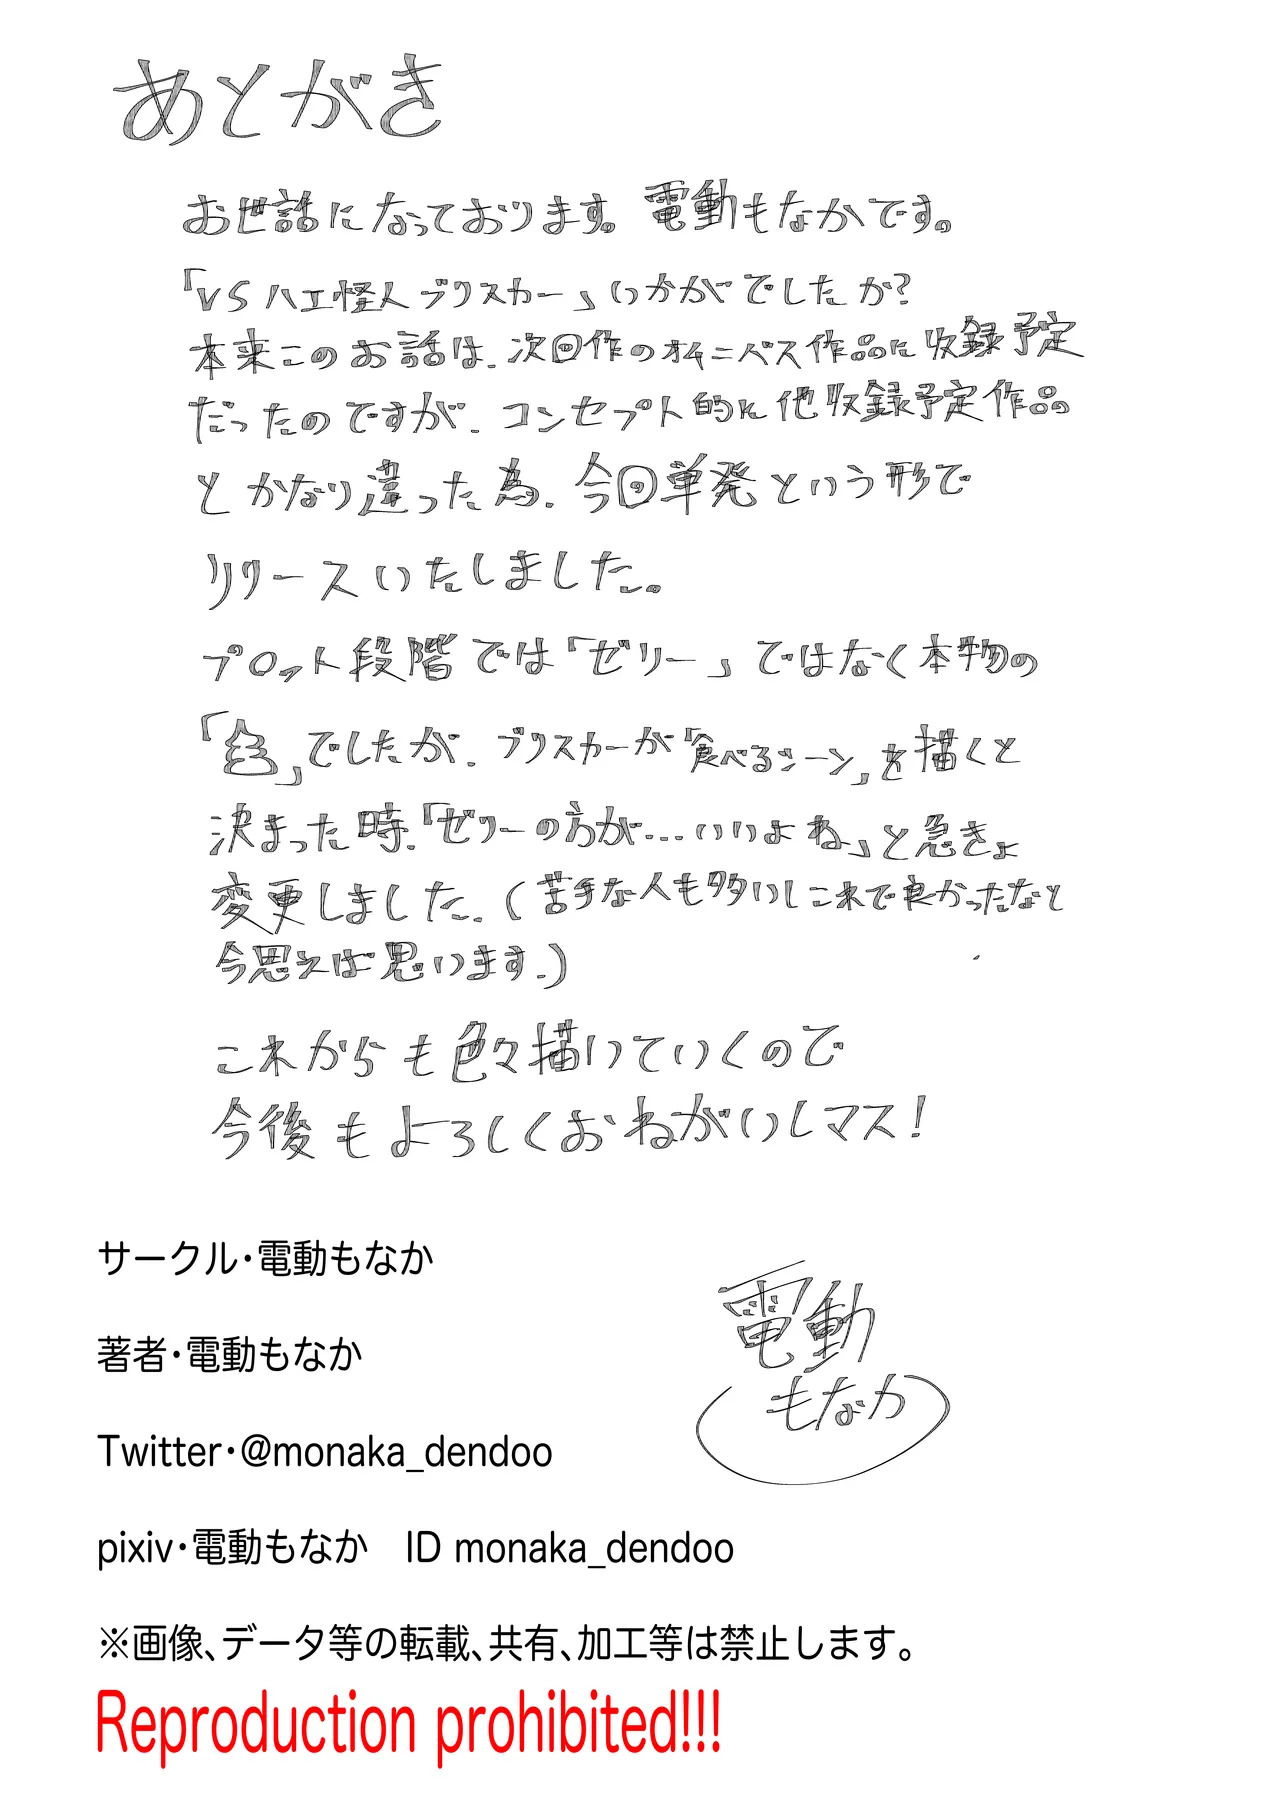 あとがき
お世話になっております。電動もなかです。
「VSハエ怪人ブリスカー」いかがでしたか?
本来このお話は、次回作のオムニバス作品に収録予定
だったのですが、コンセプト的に他収録予定作品
とかなり違った為、今回単発という形で
リリースいたしました。
プロット段階では「ゼリー」ではなく本物の
「」でしたが、ブリスカーが「食べるシーン」を描くと
決まった時、「ゼリーの方が…いいよね」と急きょ
変更しました。(苦手な人も多いしこれで良かったなと
今思えば思います。)
これからも色々描いていくので
今後もよろしくおねがいしマス!
サークル・電動もなか
著者・電動もなか
Twitter・@monaka_dendoo
pixiv・電動もなか ID monaka_dendoo
※画像、データ等の転載、共有、加工等は禁止します。
Reproduction prohibited!!!
電動
もなか